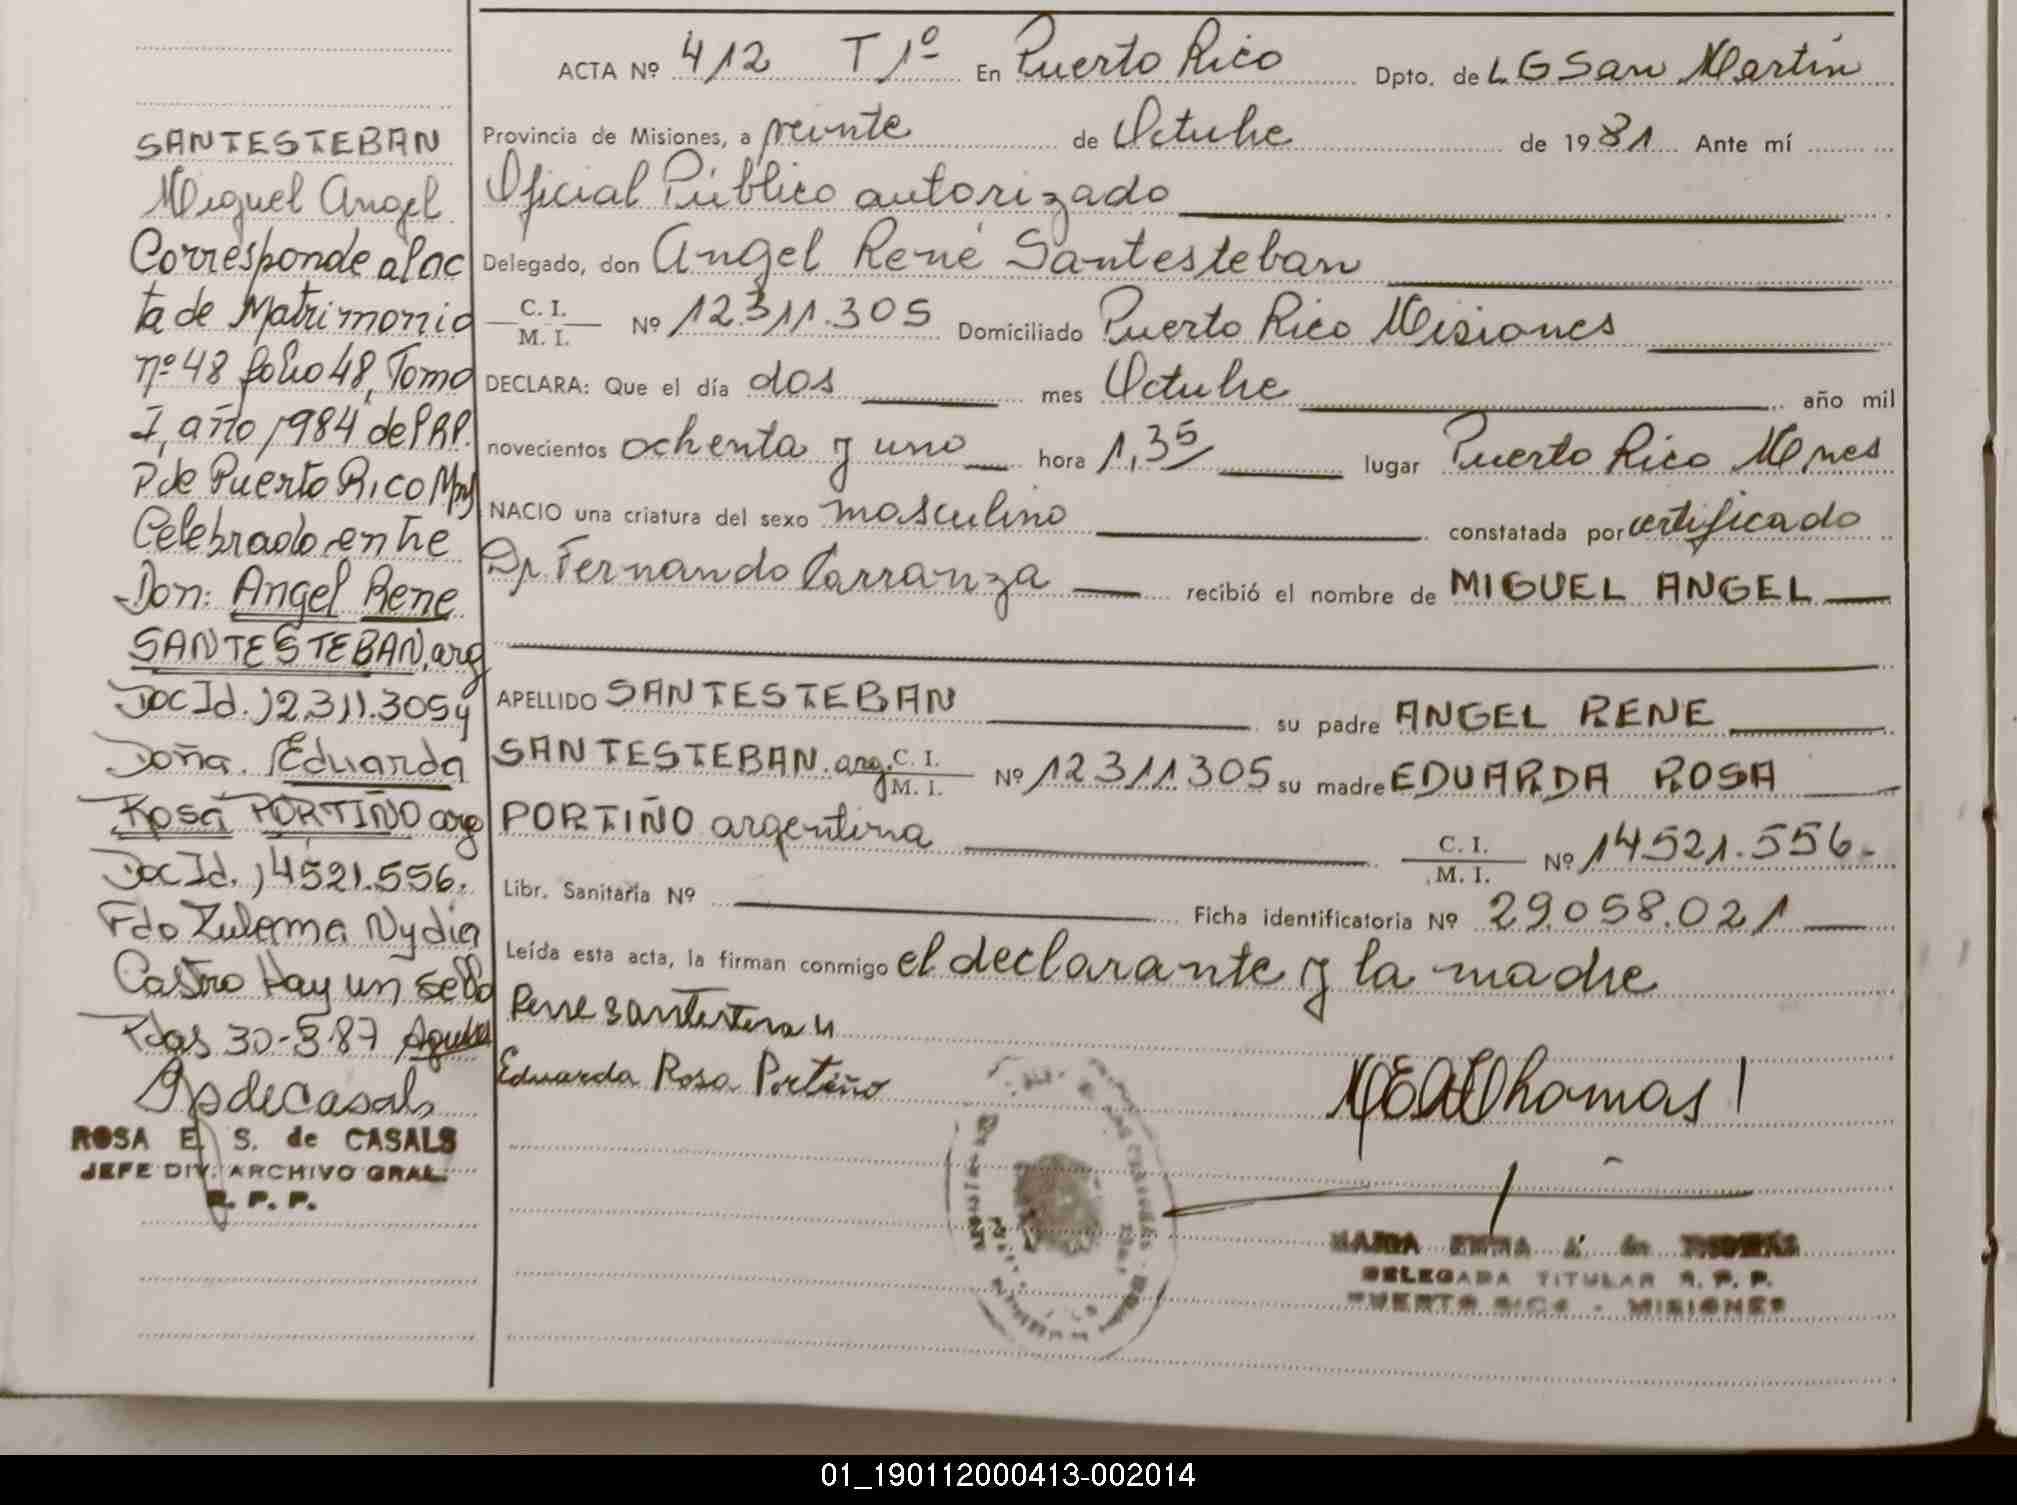 SANTESTEBAN
Miguel Angel
Corresponde al ac
ta de Matrimonio
nº 48 folio 48, Tomo
I, año 1984 del R.P.
P de Puerto Rico Mns
Celebrado entre
Don: Angel Rene
SANTESTEBAN, arg
Doc Id. 12.311.305 y
Doña. Eduarda
Rosa PORTIÑO arg
Doc Id. 14521.556.
Fdo Zulema Nydia
Castro Hay un sello
Pdas 30-3-87
deCasals
ROSA E. S. de CASALS
JEFE DIV. ARCHIVO GRAL.
R. P. P.
ACTA Nº 412 T 1º En Puerto Rico Dpto. de L G San Martín
Provincia de Misiones, a veinte de Octubre de 1981 Ante mí
Oficial Público autorizado
Delegado, don Angel René Santesteban
C. I.
M. I. Nº 12.311.305 Domiciliado Puerto Rico Misiones
DECLARA: Que el día dos mes Octubre año mil
novecientos ochenta y uno hora 1,35 lugar Puerto Rico Mnes
NACIO una criatura del sexo masculino constatada por certificado
Dr. Fernando Carranza recibió el nombre de MIGUEL ANGEL
APELLIDO SANTESTEBAN su padre ANGEL RENE
SANTESTEBAN. arg. C. I.
M. I. Nº 12311305 su madre EDUARDA ROSA
PORTIÑO argentina C. I.
M. I. Nº 14521.556.
Libr. Sanitaria Nº Ficha identificatoria Nº 29.058.021
Leída esta acta, la firman conmigo el declarante y la madre
Eduarda Rosa Portiño
Thomas
MARIA EMMA de
DELEGADA TITULAR R. P. P.
PUERTO RICO - MISIONES
01_190112000413-002014